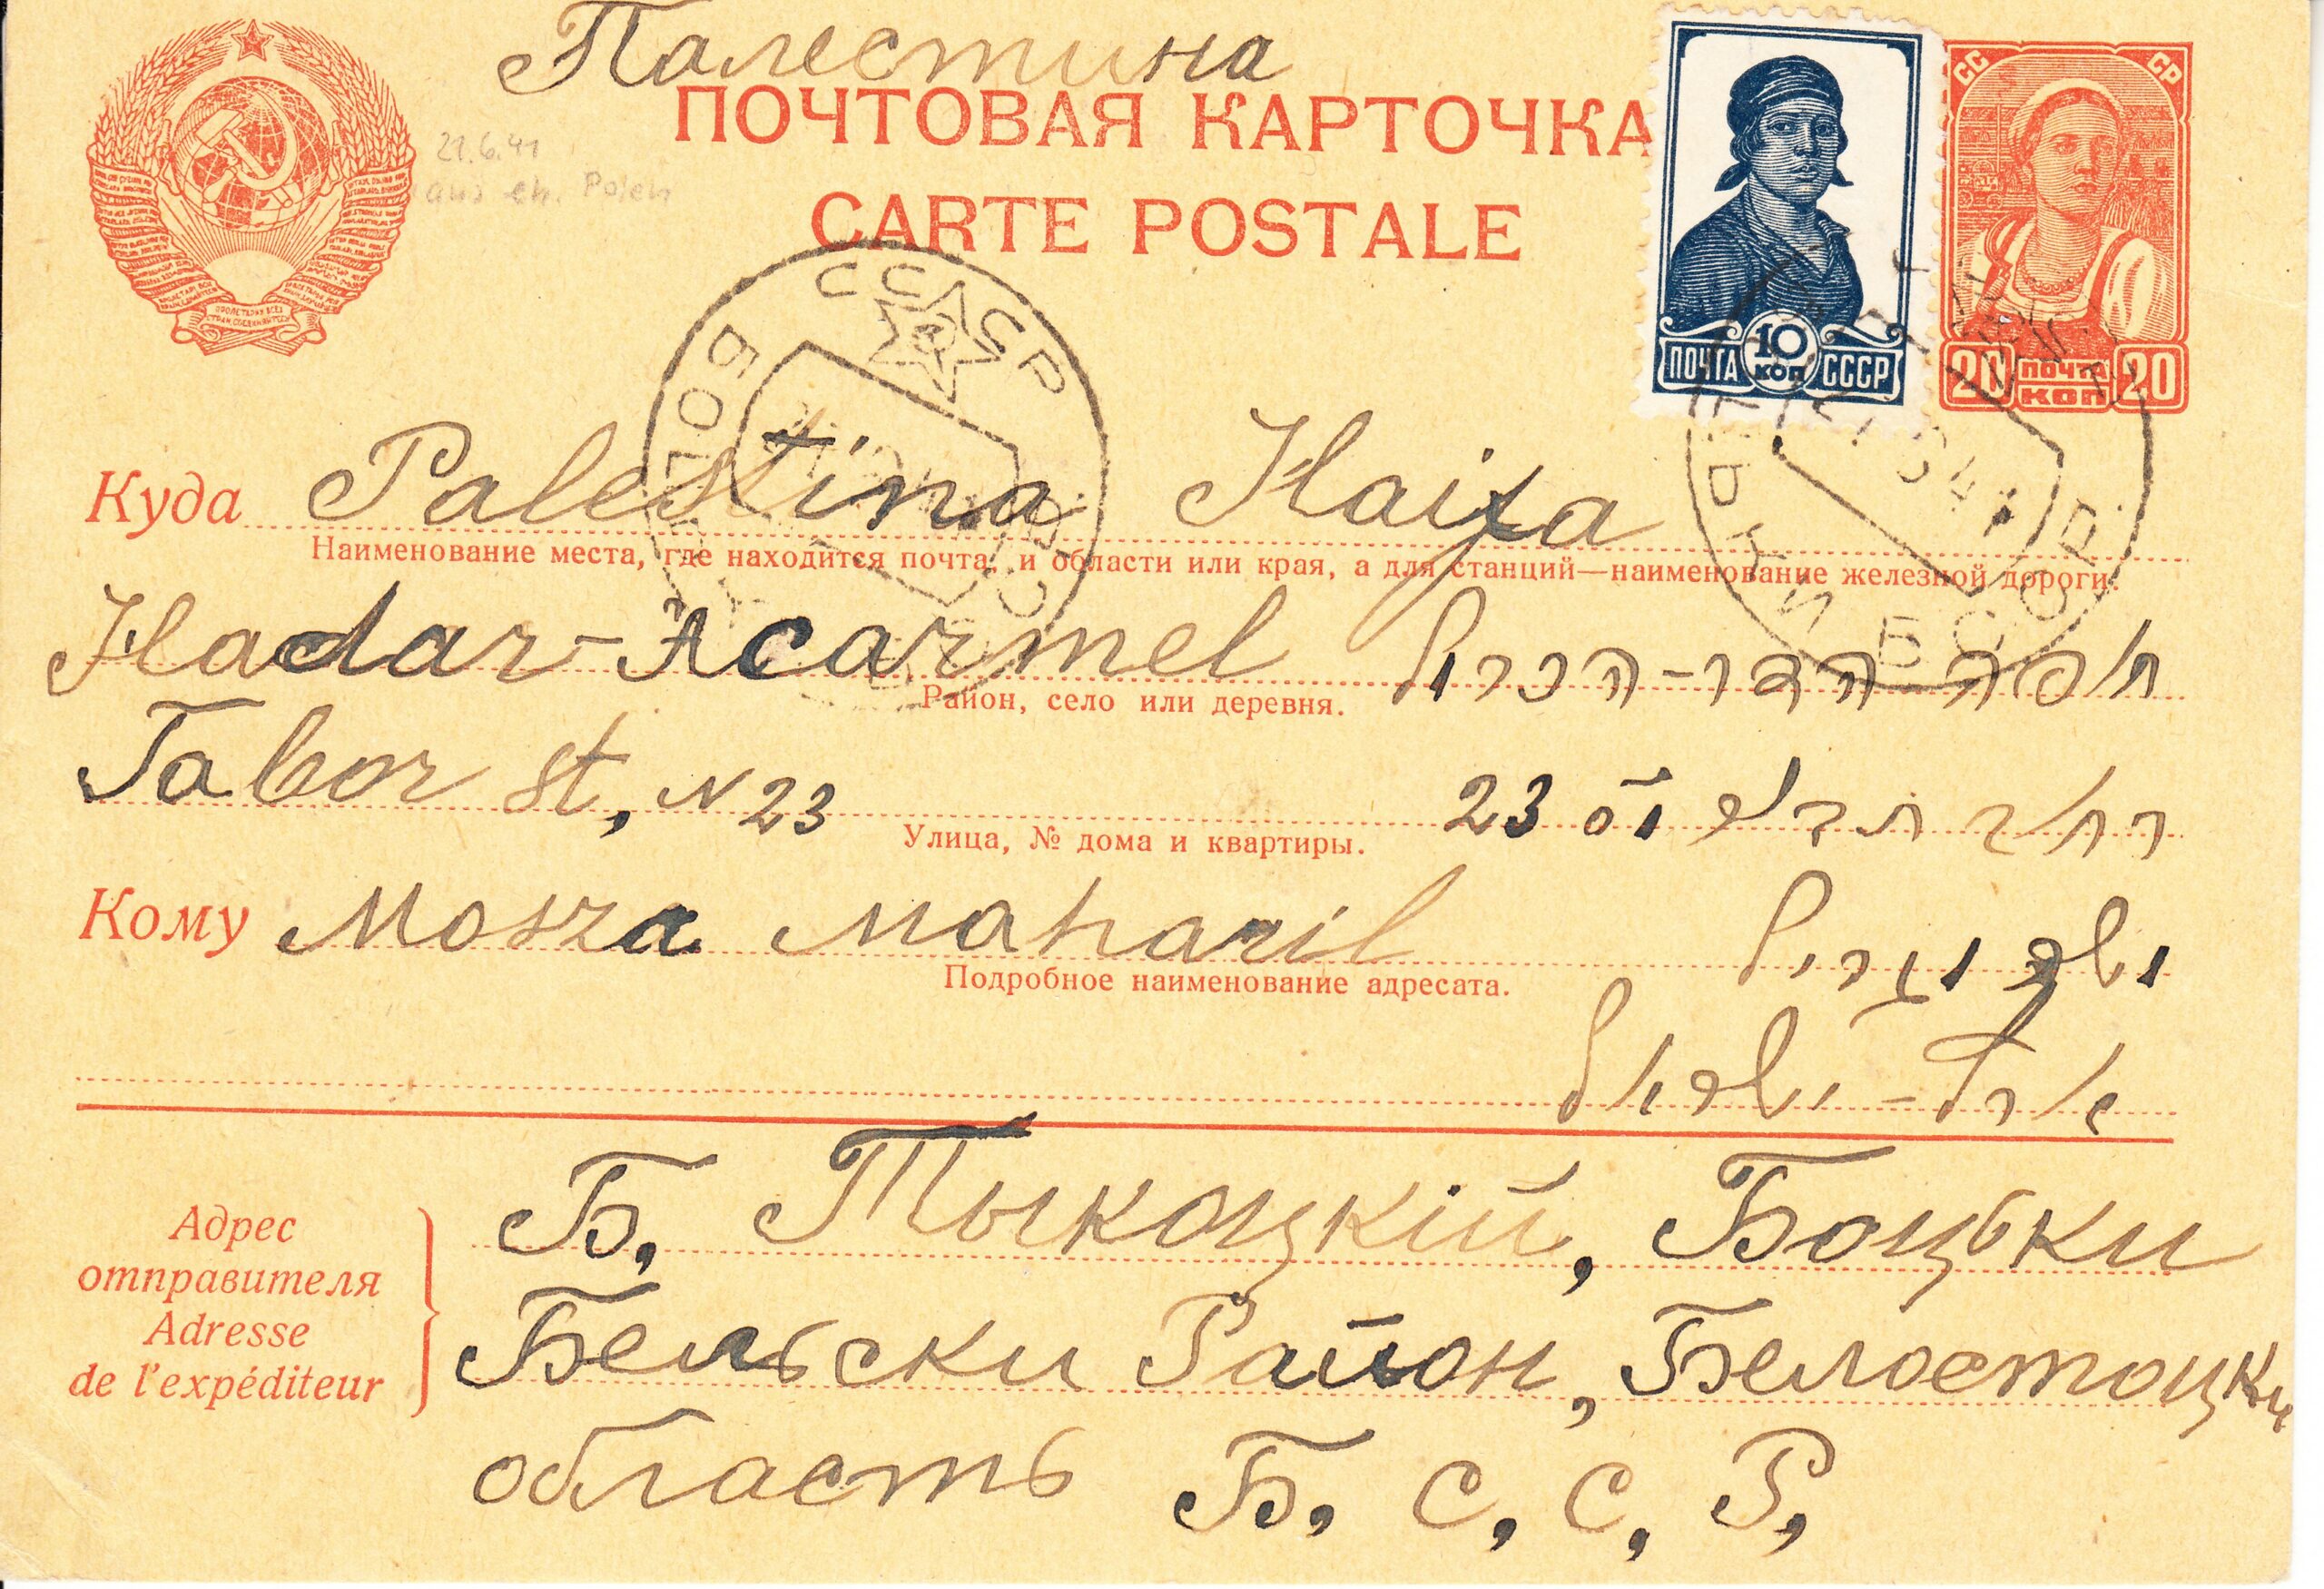 Палестина
ПОЧТОВАЯ КАРТОЧКА
CARTE POSTALE
21.6.41
aus eh. Polen
СС СР
10 КОП
ПОЧТА СССР
20 ПОЧТА КОП 20
СССР
Куда Palestina Haifa
Наименование места, где находится почта, и области или края, а для станций—наименование железной дороги.
Hadar-Acarmel חיפה הדר-הכרמל
Район, село или деревня.
Tabor st, N 23 רחוב תבור 23
Улица, № дома и квартиры.
Кому Mosza Maharil
Подробное наименование адресата.
Адрес отправителя
Adresse de l'expéditeur
Б. Тыкоцкій, Боцьки
Бельски Район, Белостоцки
область Б. С. С. Р.